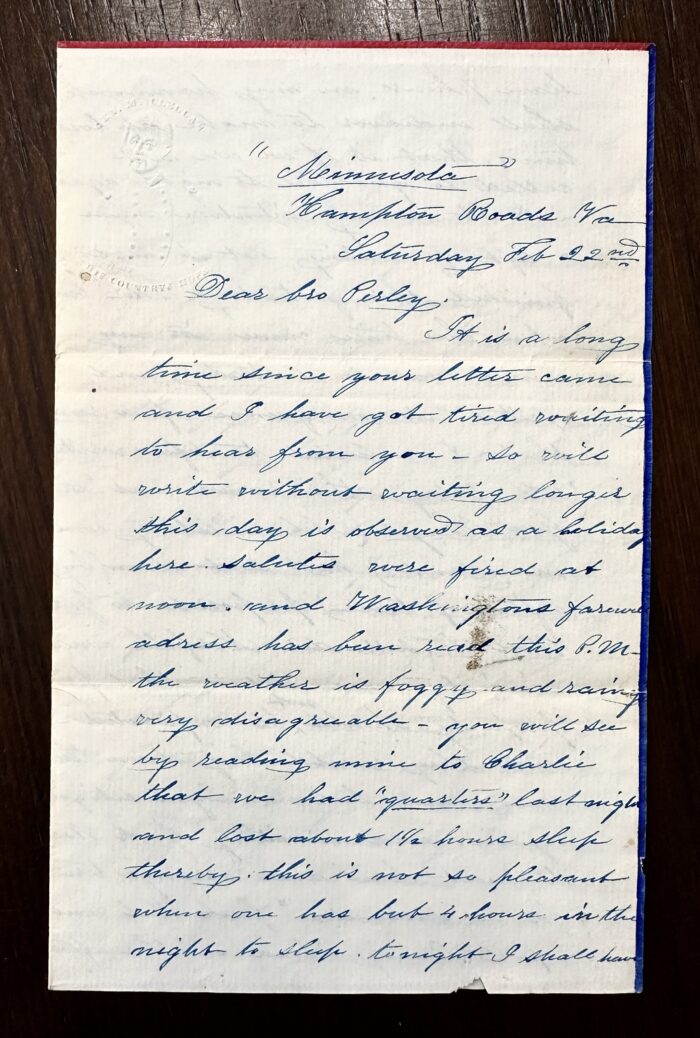 " Minnesota "
Hampton Roads Va
Saturday Feb 22nd
Dear bro Perley.
It is a long
time since your letter came
and I have got tired waiting
to hear from you - so will
write without waiting longer
this day is observed as a holiday
here. salutes were fired at
noon. and Washingtons farewell
adress has been read this P.M-
the weather is foggy and rainy
very disagreeable - you will see
by reading mine to Charlie
that we had "quarters" last night
and lost about 1½ hours sleep
thereby. this is not so pleasant
when one has but 4 hours in the
night to sleep. tonight I shall have